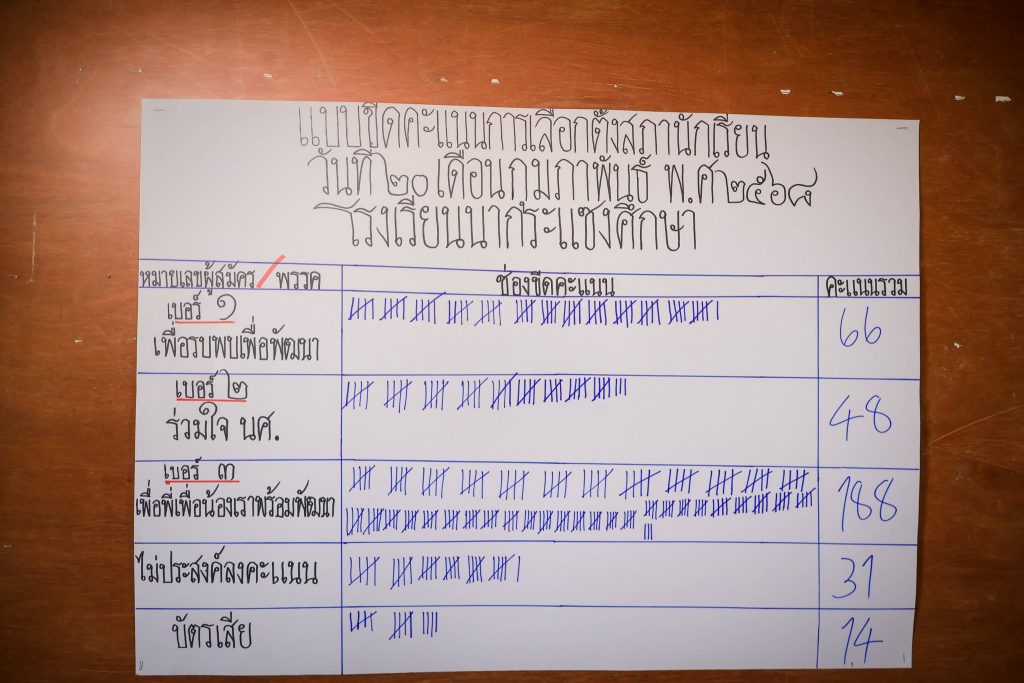 แบบขีดคะแนนการเลือกตั้งสภานักเรียน
วันที่ ๒๐ เดือนกุมภาพันธ์ พ.ศ ๒๕๖๘
โรงเรียนนากระแซงศึกษา
หมายเลขผู้สมัคร / พรรค ช่องขีดคะแนน คะแนนรวม
เบอร์ ๑
เพื่อรบพบเพื่อพัฒนา 66
เบอร์ ๒
ร่วมใจ นศ. 48
เบอร์ ๓
เพื่อพี่เพื่อน้องเราพร้อมพัฒนา 188
ไม่ประสงค์ลงคะแนน 31
บัตรเสีย 14